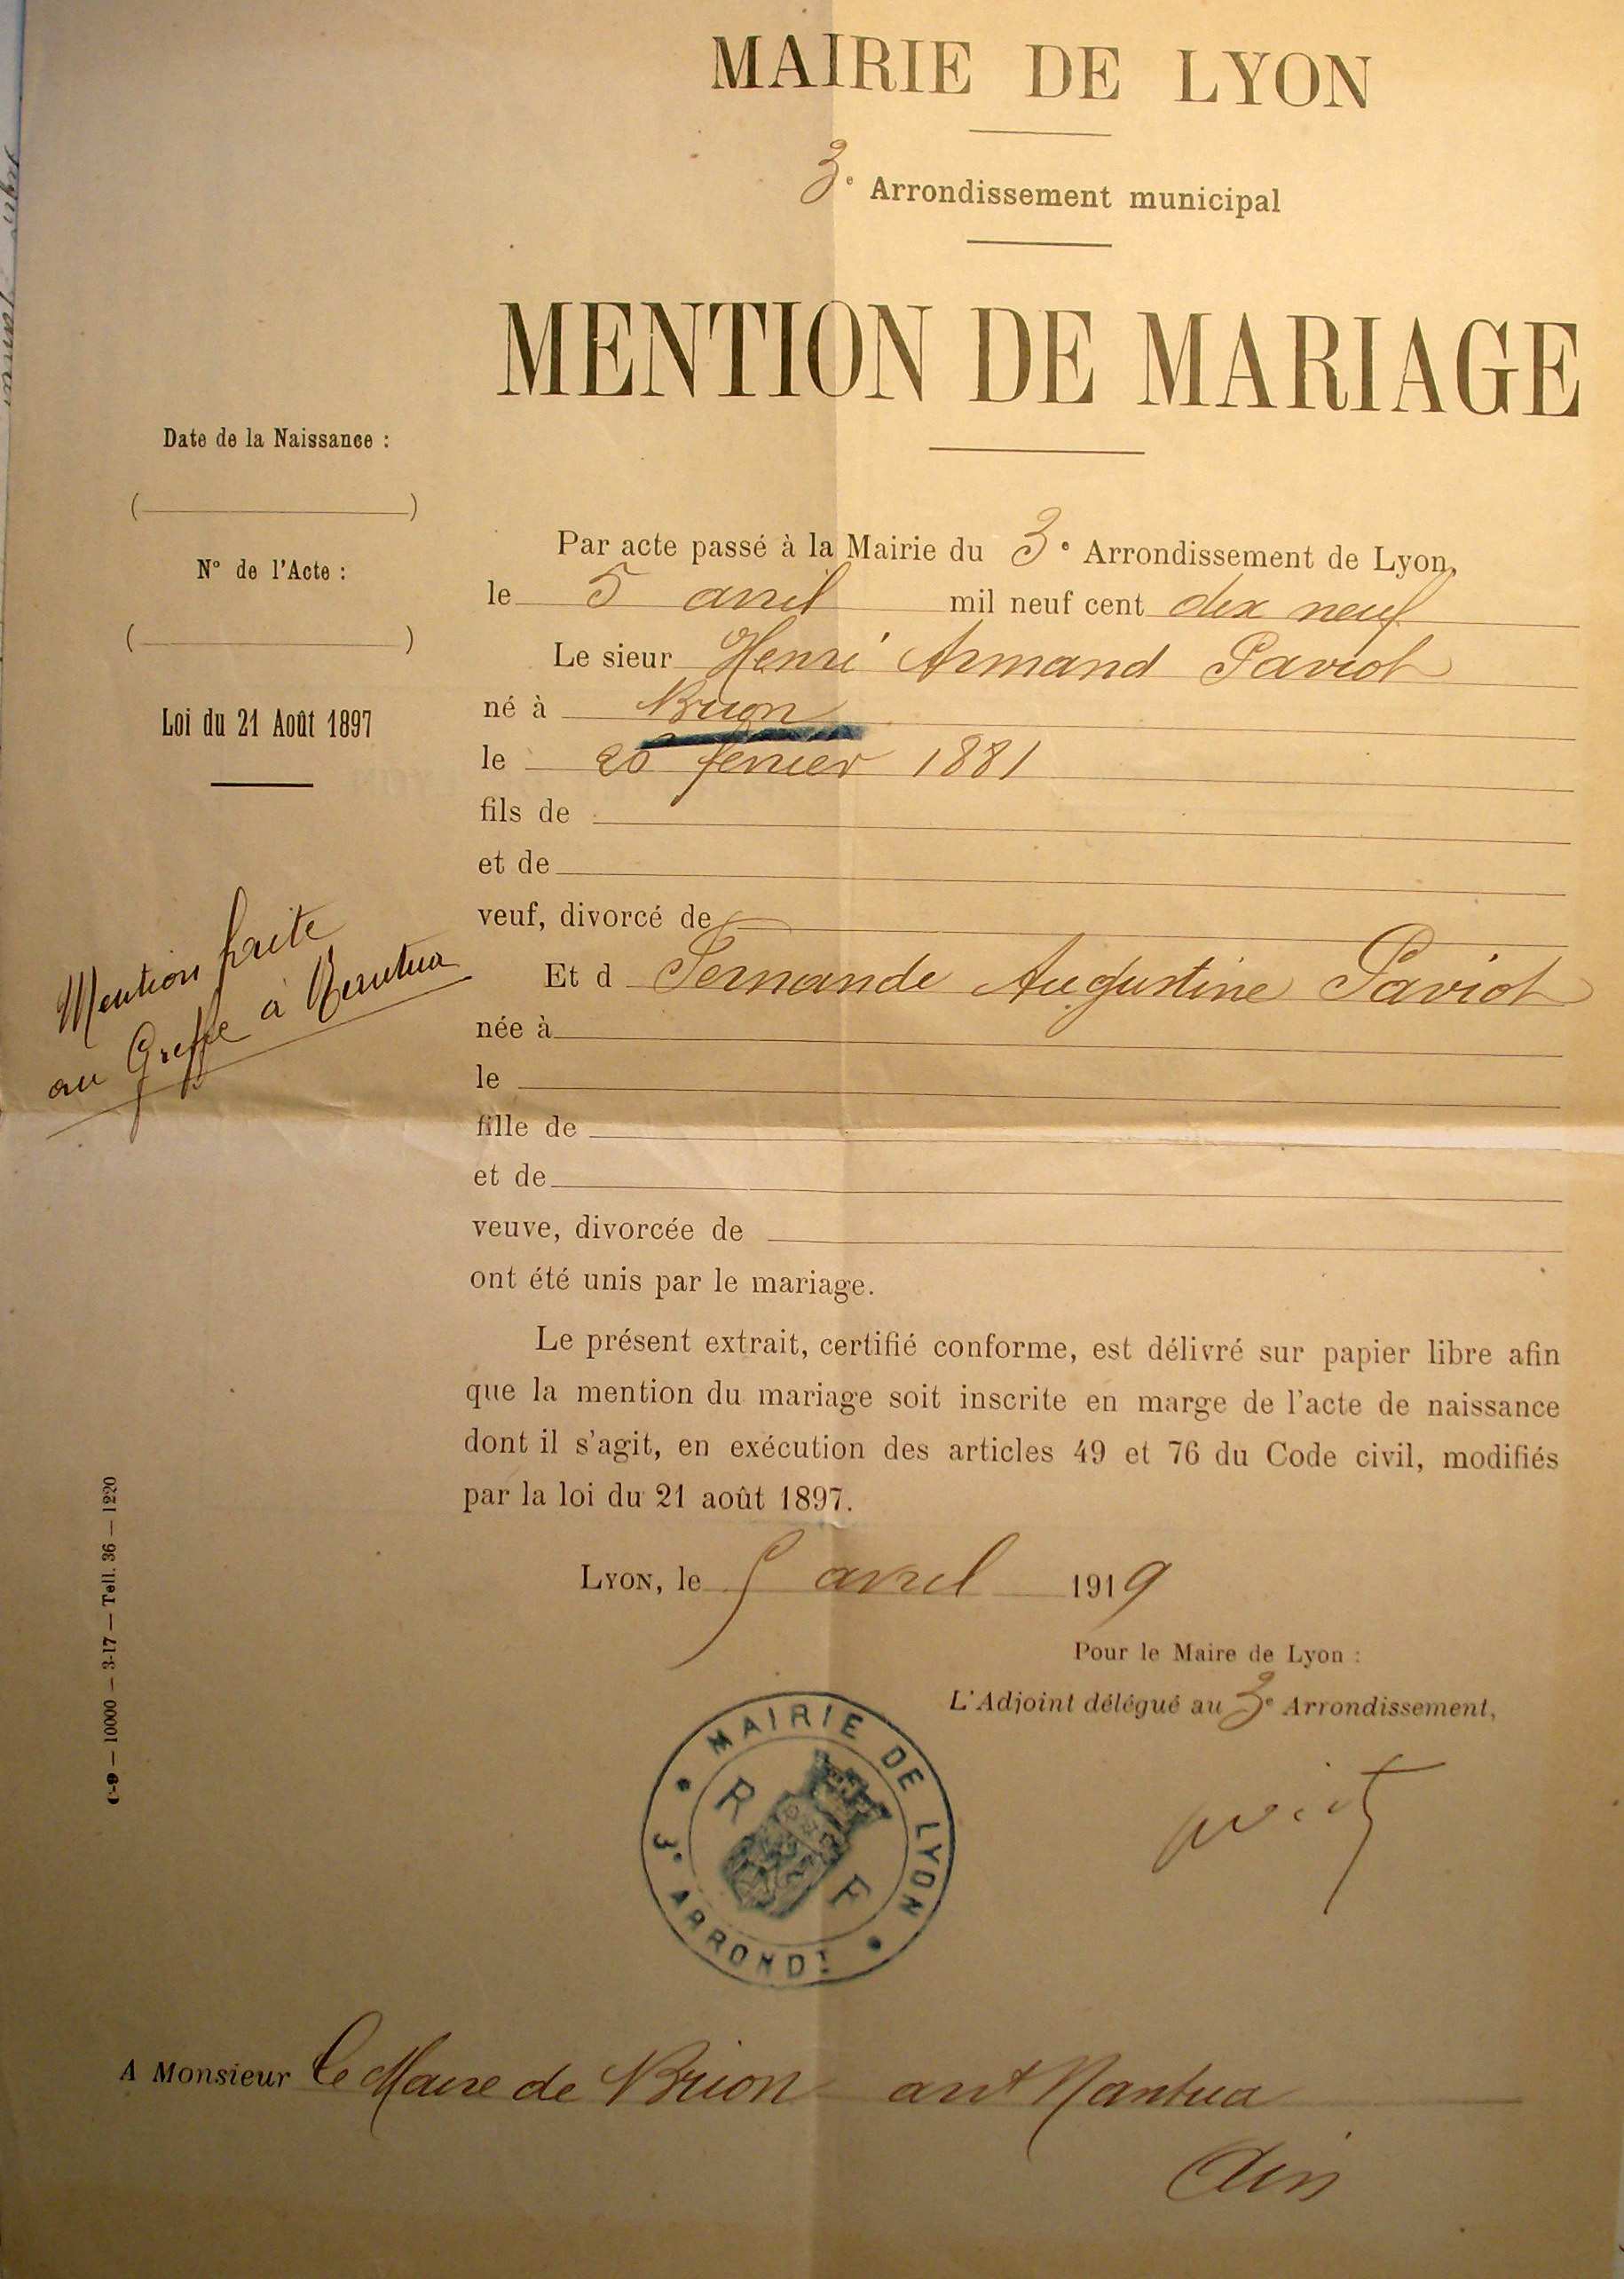 MAIRIE DE LYON
3e Arrondissement municipal
MENTION DE MARIAGE
Date de la Naissance :
( )
N° de l'Acte :
( )
Loi du 21 Août 1897
Mention faite
au Greffe à
Par acte passé à la Mairie du 3e Arrondissement de Lyon,
le 5 avril mil neuf cent dix neuf
Le sieur Henri Armand Paviot
né à Brion
le 20 fevrier 1881
fils de
et de
veuf, divorcé de
Et d Fernande Augustine Paviot
née à
le
fille de
et de
veuve, divorcée de
ont été unis par le mariage.
Le présent extrait, certifié conforme, est délivré sur papier libre afin
que la mention du mariage soit inscrite en marge de l'acte de naissance
dont il s'agit, en exécution des articles 49 et 76 du Code civil, modifiés
par la loi du 21 août 1897.
LYON, le 5 avril 1919
Pour le Maire de Lyon :
L'Adjoint délégué au 3e Arrondissement,
MAIRIE DE LYON
R F
3e ARRONDT
A MONSIEUR le Maire de Brion arrt Nantua
Ain
C-9 — 10000 — 3-17 — Tell. 36 — 1220